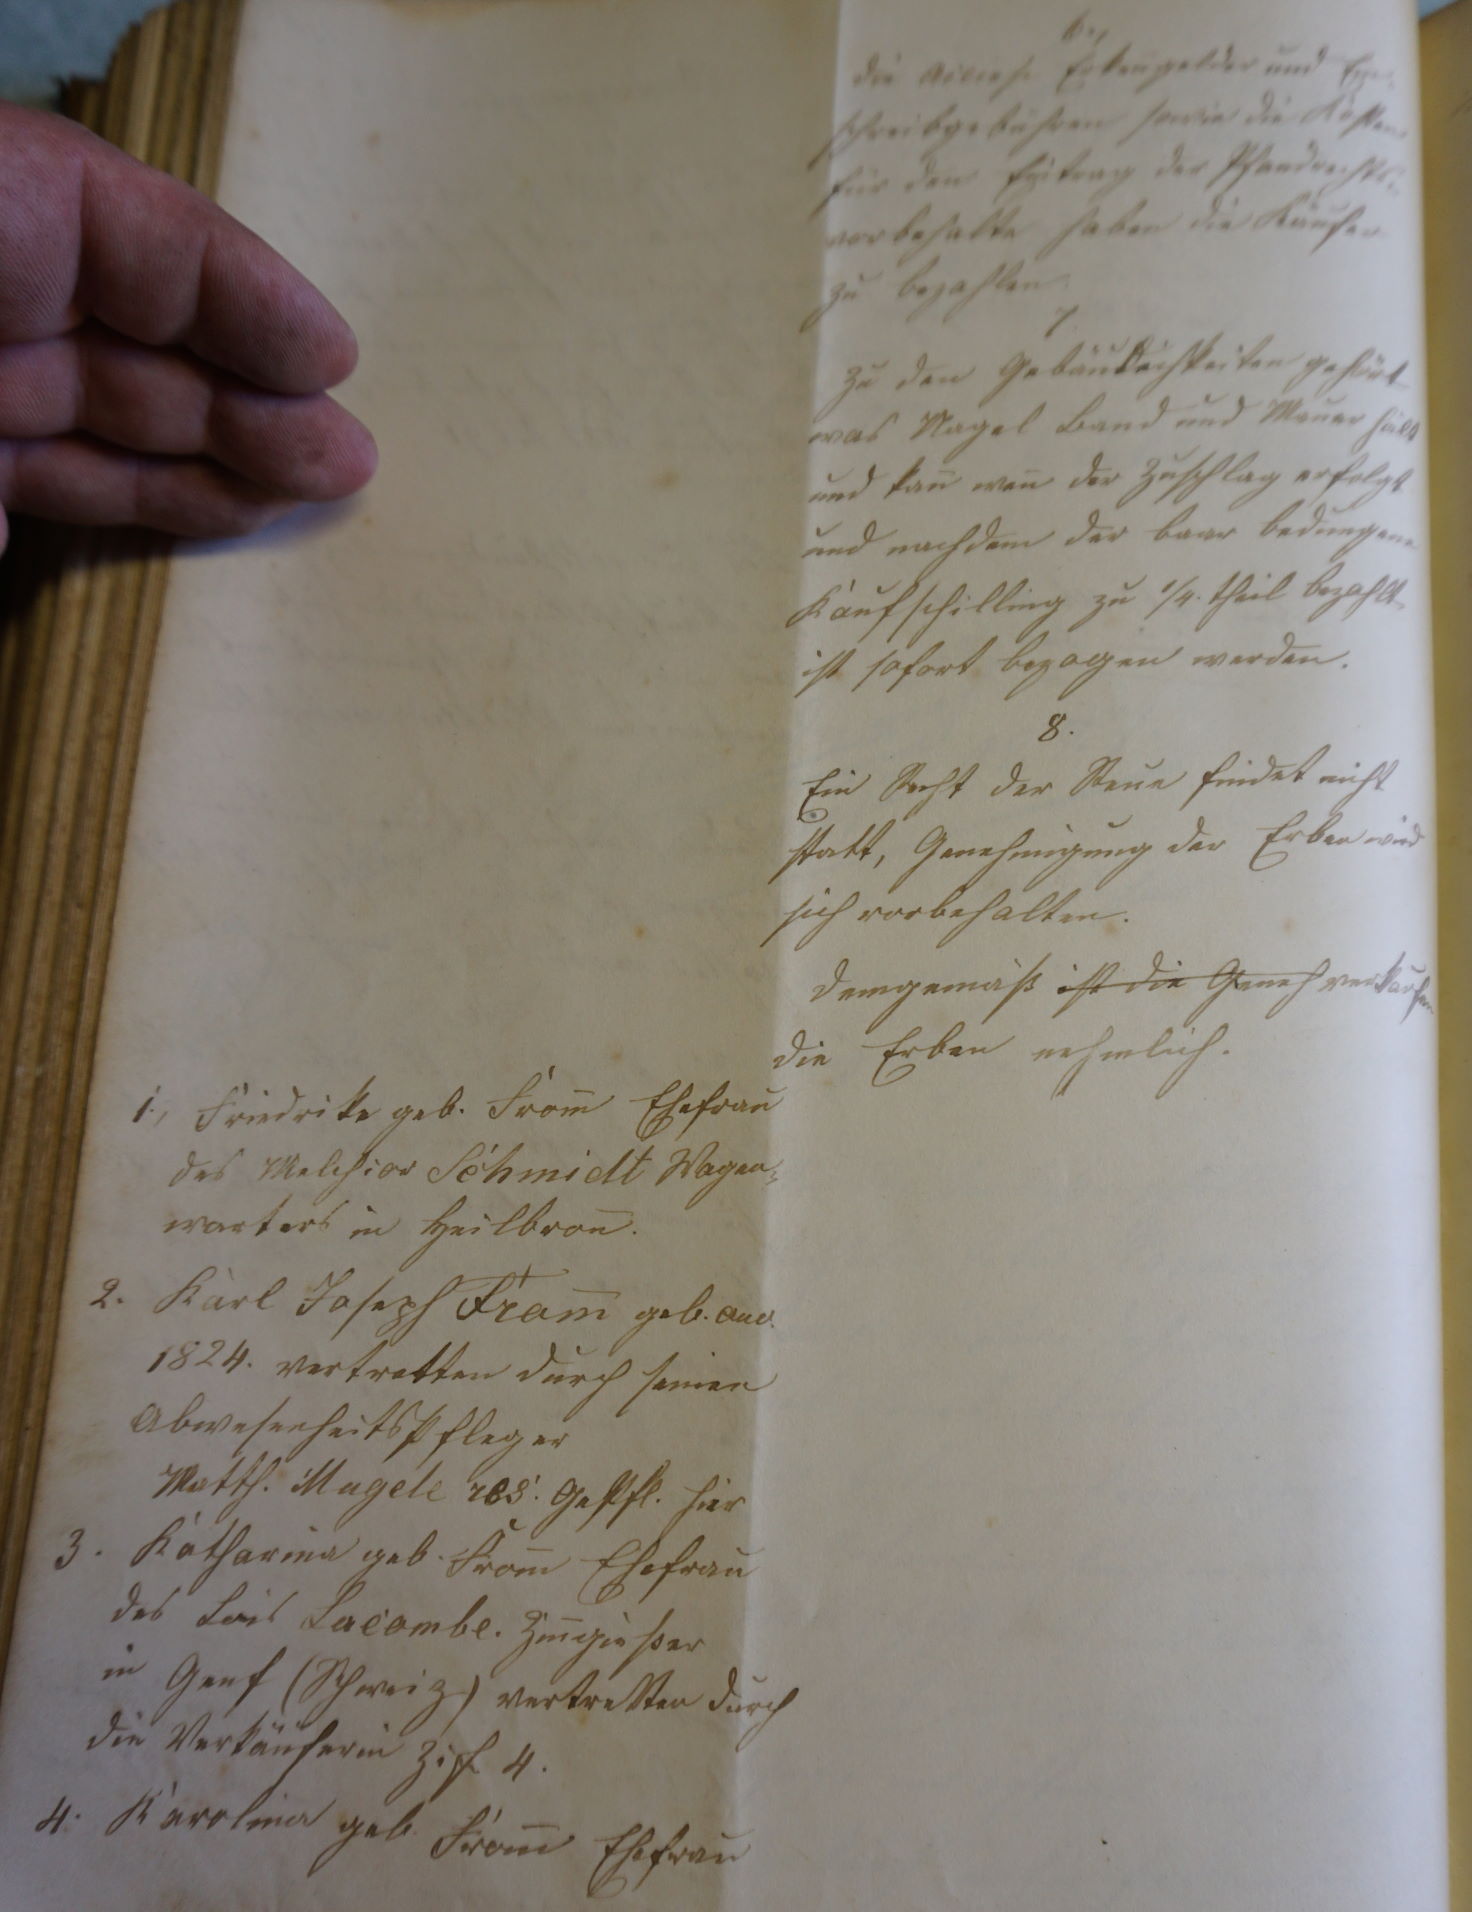 6.,
die Accise Erkenngelder und Ein-
schreibgebühren sowie die Kosten
für den Eintrag der Pfandrechts-
vorbehalte haben die Käufer
zu bezahlen.
7.
Zu den Gebäulichkeiten gehört
was Nagel Band und Mauer hält
und kan̄ wen̄ der Zuschlag erfolgt
und nachdem der baar bedungene
Kaufschilling zu 1/4. theil bezahlt
ist sofort bezogen werden.
8.
Ein Recht der Reue findet nicht
statt, Genehmigung der Erben wird
sich vorbehalten.
demgemäß ist die Geneh verkaufen
die Erben nehmlich.
1., Friedrike geb. From̄ Ehefrau
des Melchior Schmidt Wagen-
warters in Heilbron̄.
2. Karl Joseph From̄ geb. ano.
1824. vertretten durch seinen
Abwesenheitspfleger
Matth. Magele res. Gestpfl. hier
3. Katharina geb. From̄ Ehefrau
des Lois Lacombe. Zin̄gießer
in Genf (Schweiz) vertretten durch
die Verkäuferin Zif. 4.
4. Karolina geb. From̄ Ehefrau